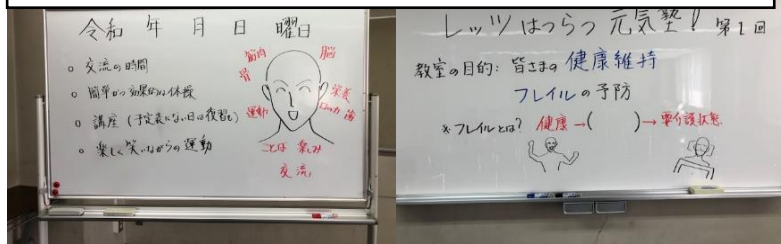 令和 年 月 日 曜日
○ 交流の時間
○ 簡単かつ効果的な体操
○ 講座(予定表にない日は復習も)
○ 楽しく笑いながらの運動
筋肉
骨
脳
栄養
運動
ことば 楽しみ
交流
レッツ はつらつ 元気塾! 第1回
教室の目的: 皆さまの 健康維持
フレイルの予防
※フレイルとは? 健康→( )→要介護状態